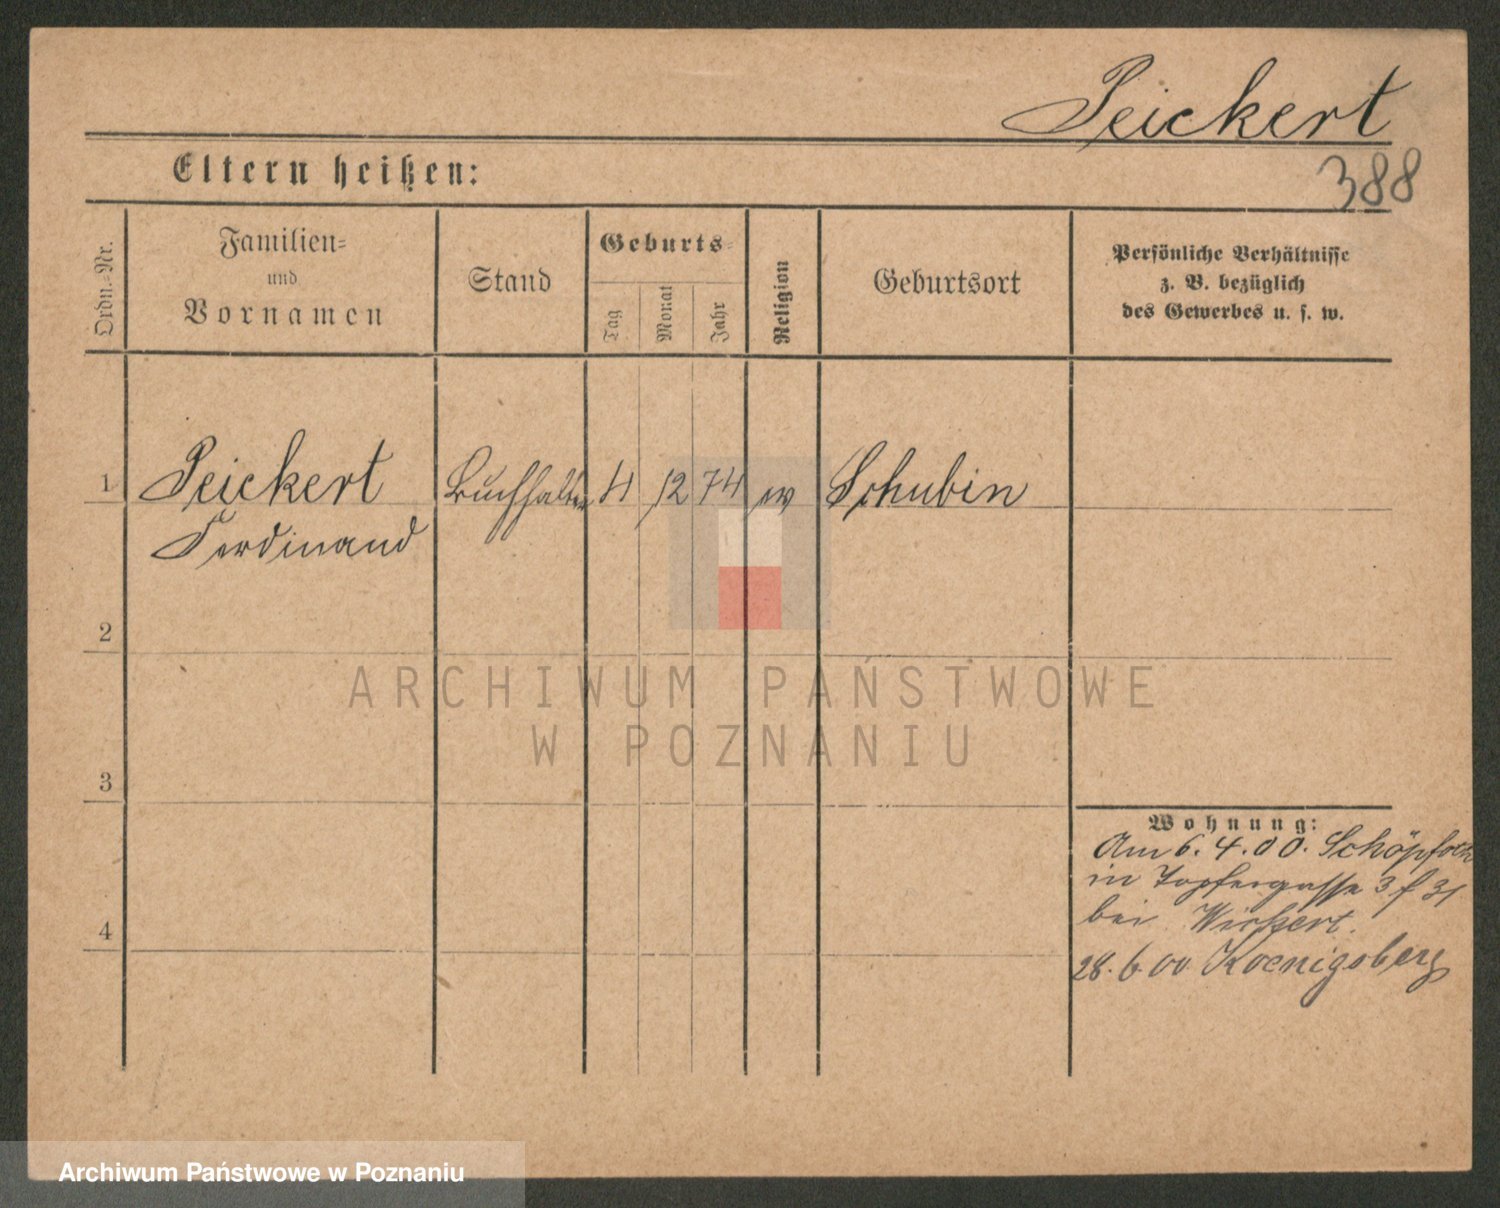 Peickert
388
Eltern heißen:
Ordn.=Nr.
Familien=
und
Vornamen
Stand
Geburts=
Tag
Monat
Jahr
Religion
Geburtsort
Persönliche Verhältnisse
z. B. bezüglich
des Gewerbes u. s. w.
1 Peickert Buchhalter 4 12 74 ev Schubin
Ferdinand
2
3
4
Wohnung:
Am 6.4.00.
in Topfergasse 3
bei Wickert.
28.6.00 Koenigsberg
ARCHIWUM PAŃSTWOWE
W POZNANIU
Archiwum Państwowe w Poznaniu